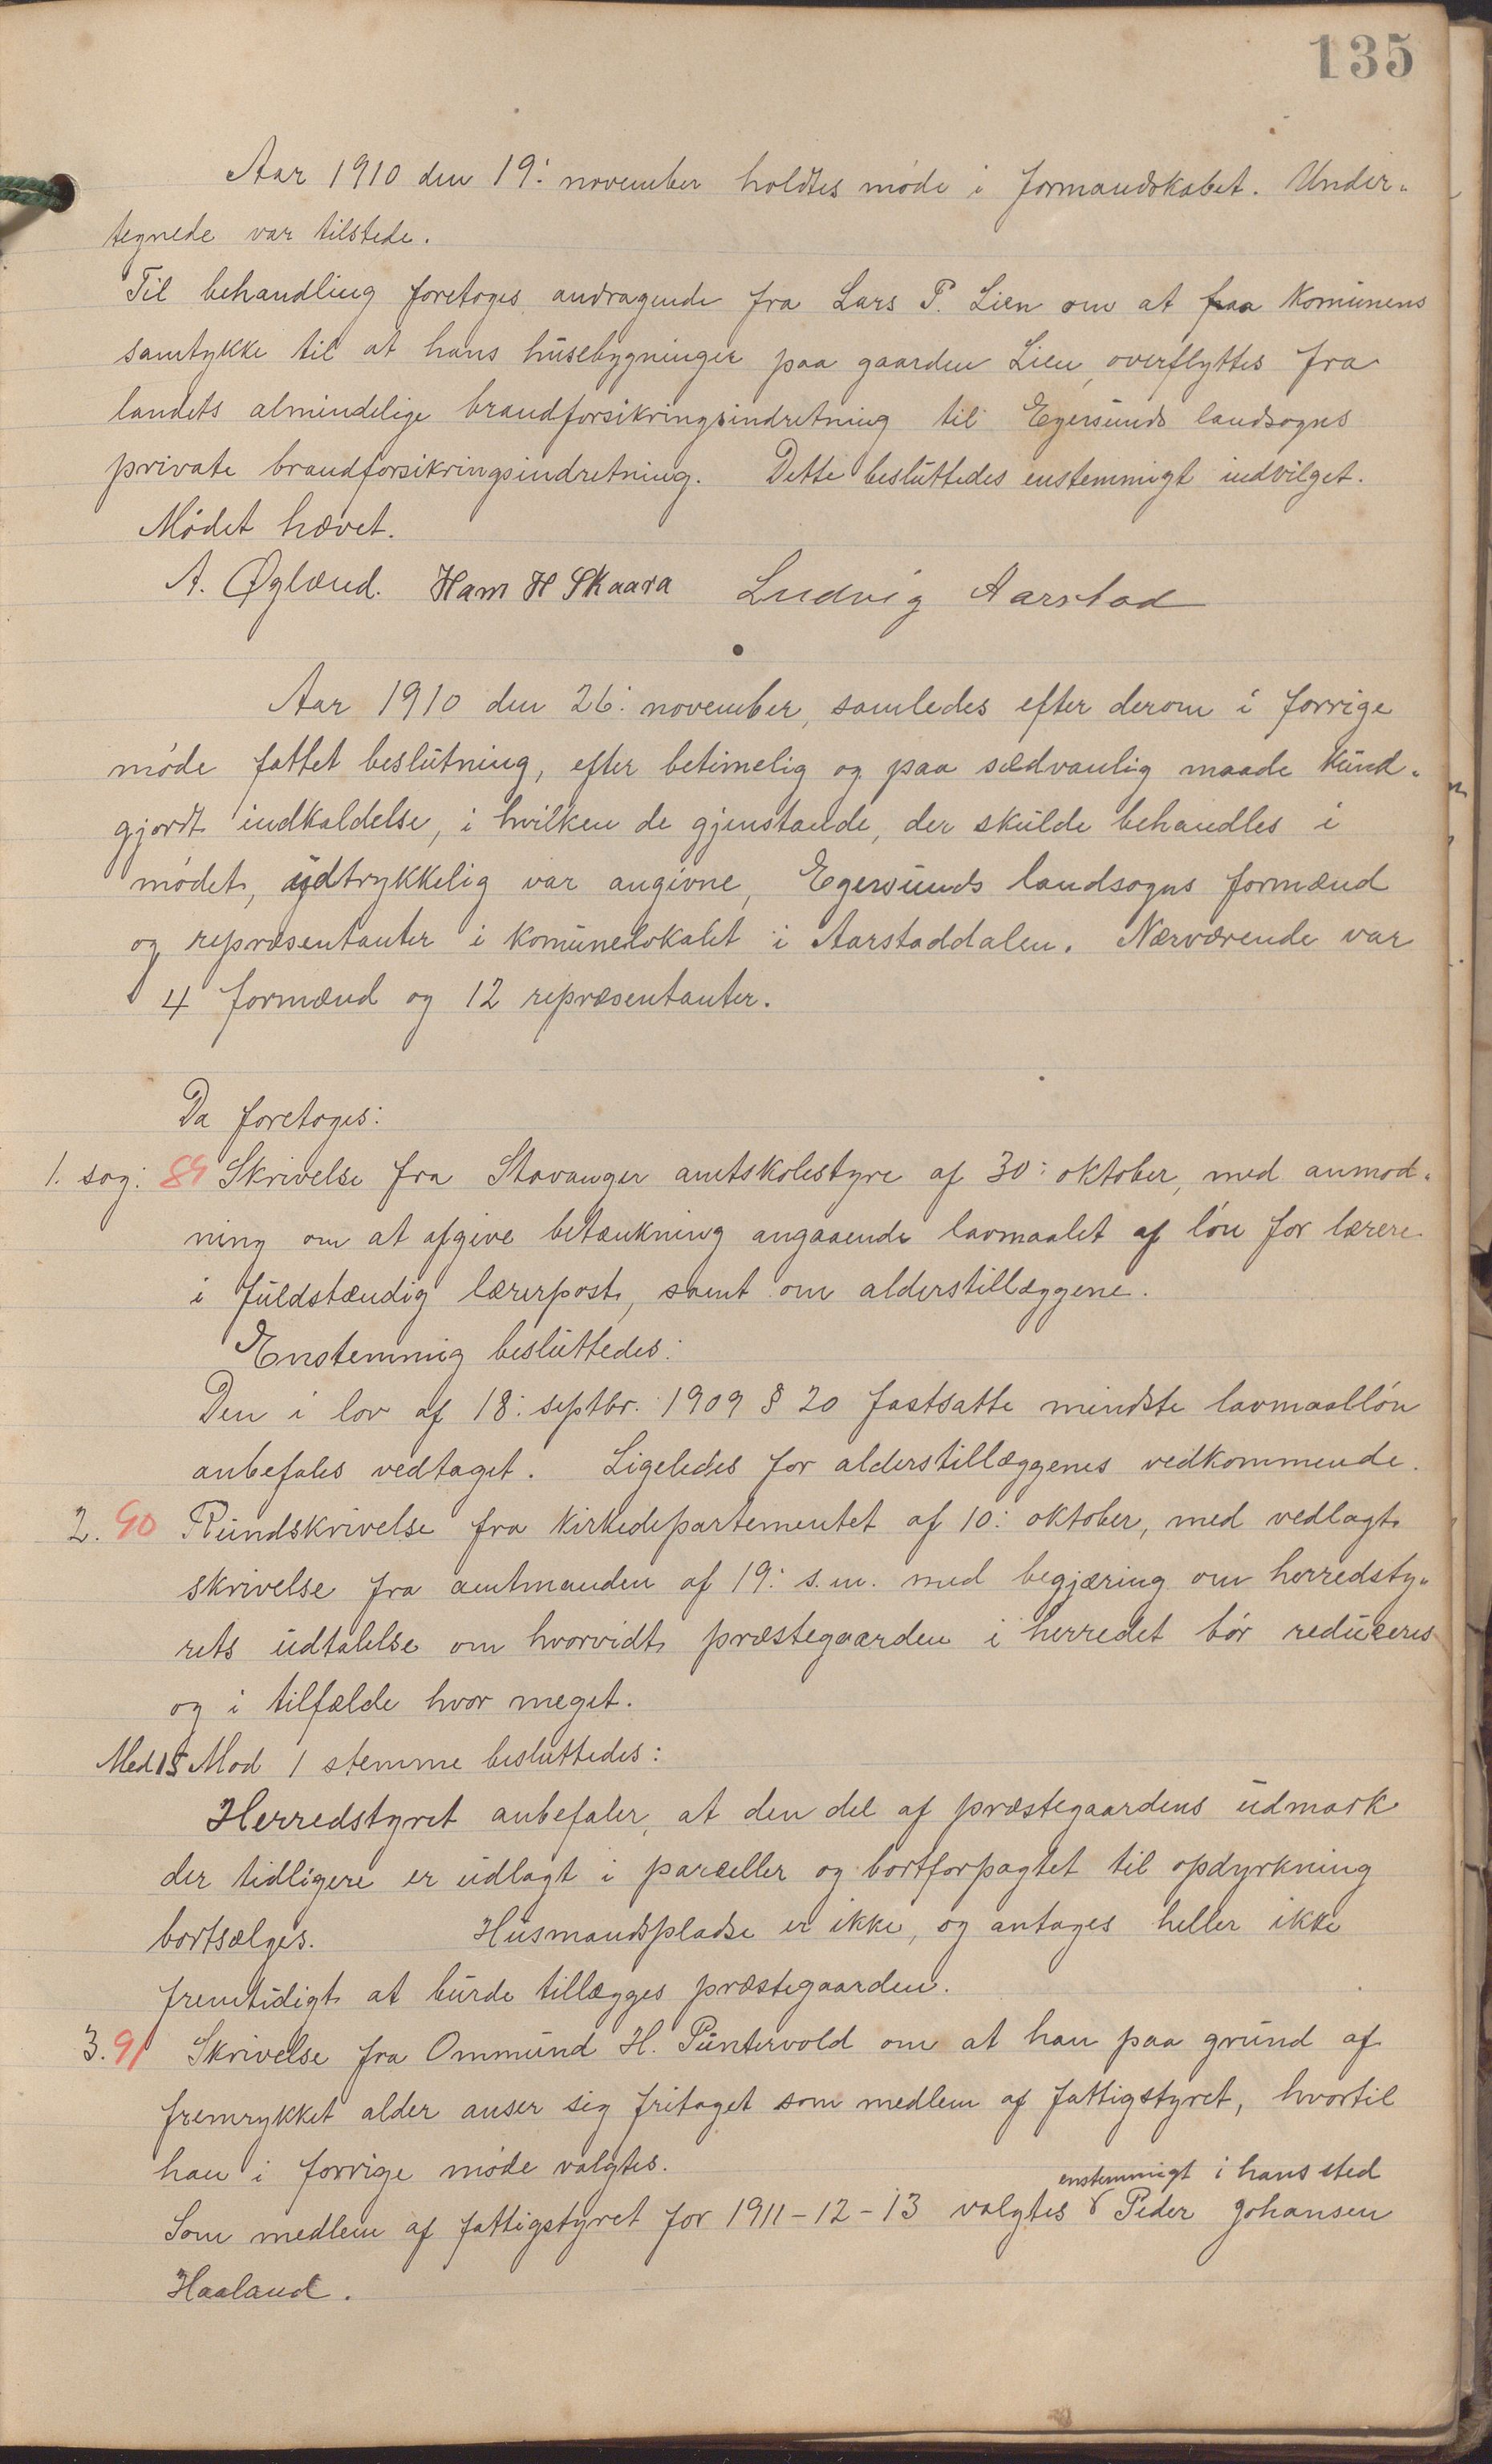 135
Aar 1910 den 19: november holdtes møde i formandskabet. Under-
tegnede var tilstede.
Til behandling foretoges andragende fra Lars P. Lien om at faa komunens
samtykke til at hans husebygninger paa gaarden Lien, overflyttes fra
landets almindelige brandforsikringsindretning til Egersunds landsogns
private brandforsikringsindretning. Dette besluttedes enstemmigt indvilget.
Mødet hævet.
A. Øglænd. Hans H Skaara Ludvig Aarstad
Aar 1910 den 26: november, samledes efter derom i forrige
møde fattet beslutning, efter betimelig og paa sædvanlig maade kund-
gjordt indkaldelse, i hvilken de gjenstande, der skulde behandles i
mødet, udtrykkelig var angivne, Egersunds landsogns formænd
og repræsentanter i komunelokalet i Aarstaddalen. Nærværende var
4 formænd og 12 repræsentanter.
Da foretoges:
1. sag: 89 Skrivelse fra Stavanger amtskolestyre af 30: oktober, med anmod-
ning om at afgive betænkning angaaende lavmaalet af løn for lærere
i fuldstændig lærerpost, samt om alderstillæggene.
Enstemmig besluttedes:
Den i lov af 18: septbr. 1909 § 20 fastsatte mindste lavmaalløn
anbefales vedtaget. Ligeledes for alderstillæggenes vedkommende.
2. 90 Rundskrivelse fra kirkedepartementet af 10: oktober, med vedlagt
skrivelse fra amtmanden af 19: s.m. med begjæring om herredsty-
rets udtalelse om hvorvidt præstegaarden i herredet bør reduceres
og i tilfælde hvor meget.
Med 15 Mod 1 stemme besluttedes:
Herredstyret anbefaler, at den del af præstegaardens udmark
der tidligere er udlagt i parceller og bortforpagtet til opdyrkning
bortsælges. Husmandspladse er ikke, og antages heller ikke
fremtidigt at burde tillægges præstegaarden.
3. 91 Skrivelse fra Ommund H. Puntervold om at han paa grund af
fremrykket alder anser sig fritaget som medlem af fattigstyret, hvortil
han i forrige møde valgtes.
enstemmigt i hans sted
Som medlem af fattigstyret for 1911-12-13 valgtes Peder Johansen
Haaland.